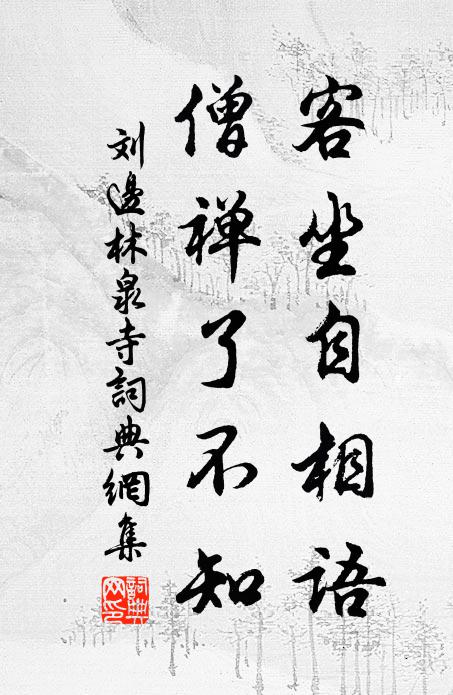 客坐自相語
僧禅了不知
刘邊林泉寺詞典網集
詞典網印